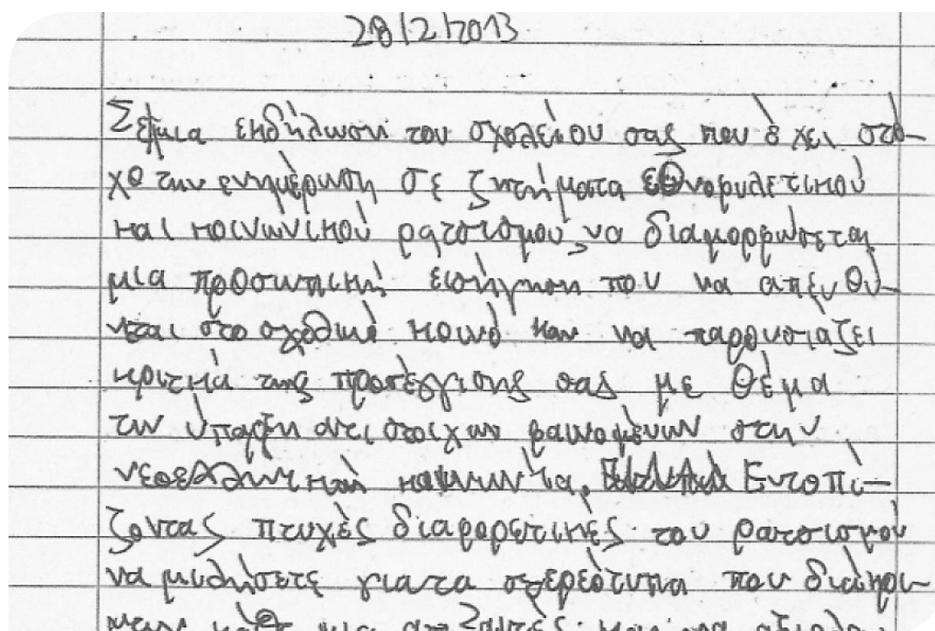 28/2/2013
Σε μια εκδήλωση του σχολείου σας που έχει στό-
χο την ενημέρωση σε ζητήματα εθνοφυλετικού
και κοινωνικού ρατσισμού, να διαμορφώσεται
μια προσωπική εισήγηση που να απευθύ-
νται στο σχολικό κοινό και να παρουσιάζει
κριτικά της προσέγγισης σας με θέμα
την ύπαρξη αντιστοίχων φαινομένων στην
νεοελληνική Εντοπί-
ζοντας πτυχές διαφορετικές του ρατσισμού
να μιλήσετε για τα στερεότυπα που
κάθε μια απ'